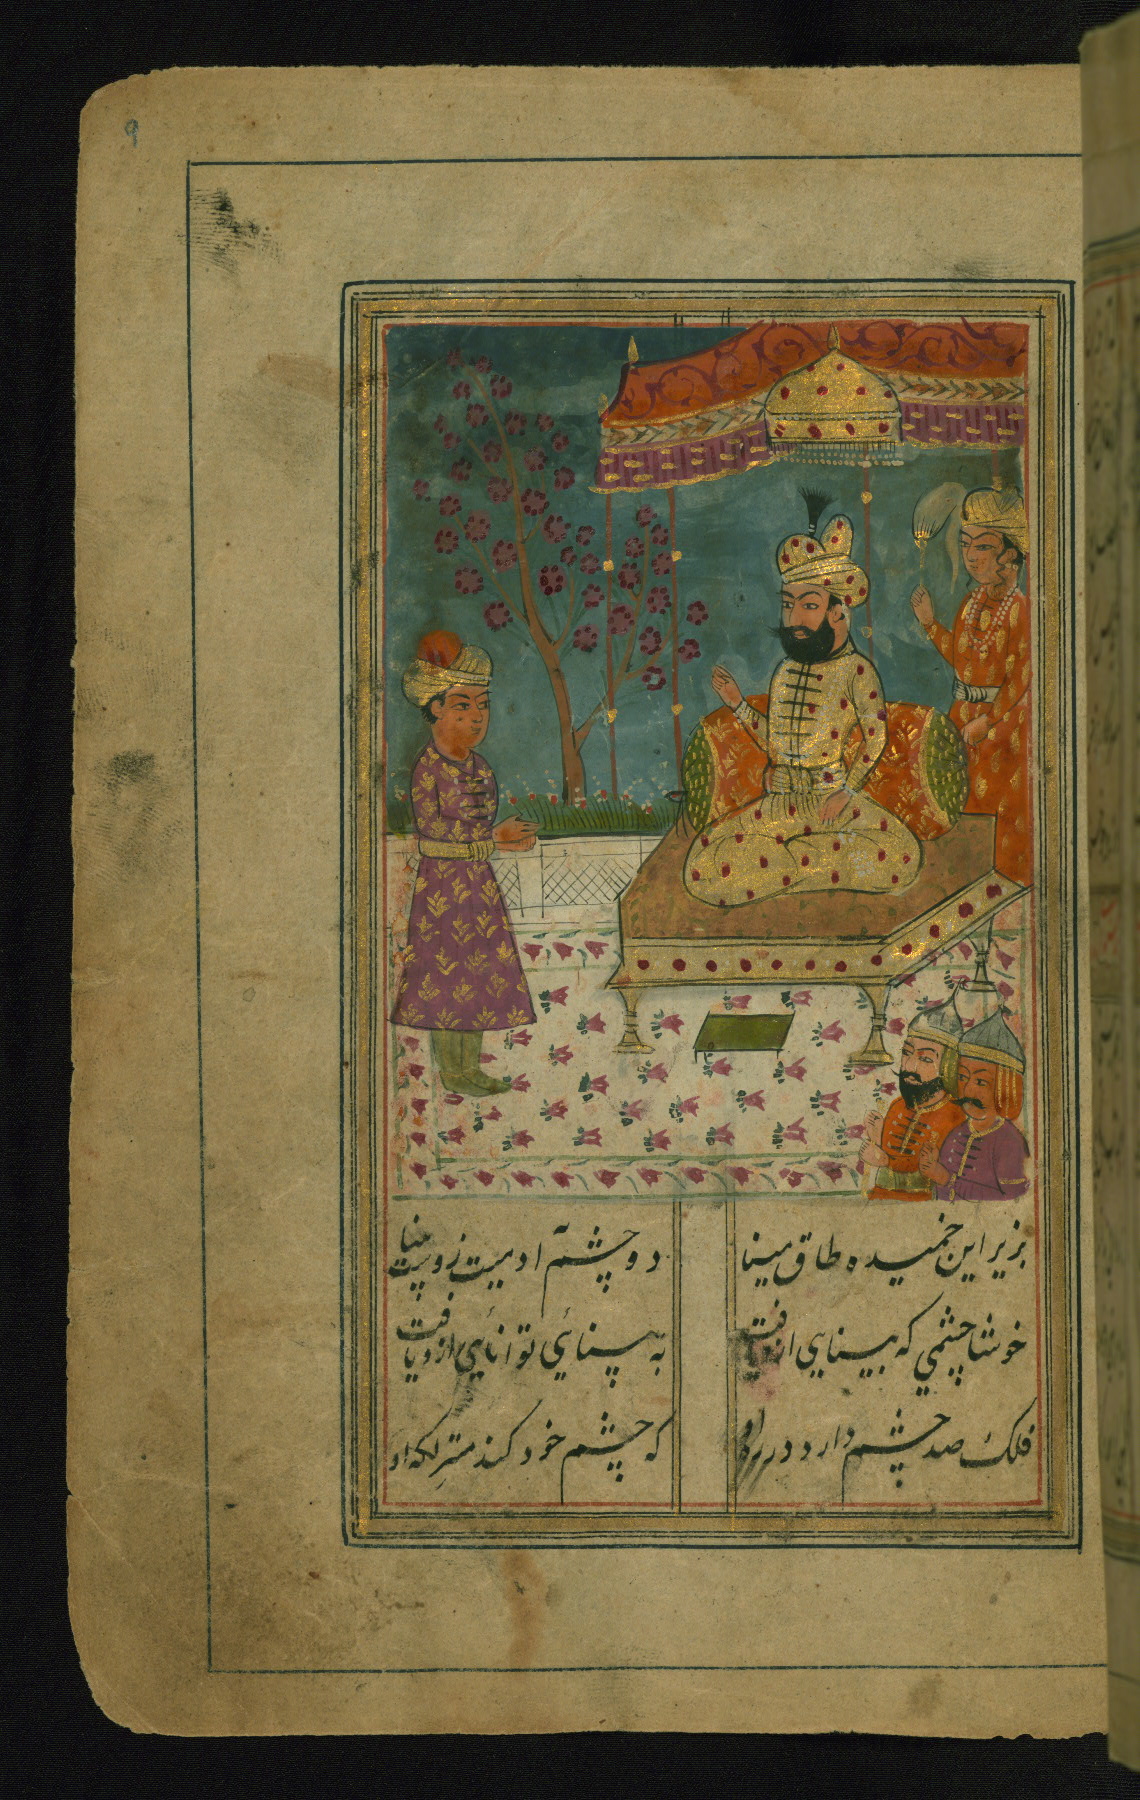 ۹
بزیر این خمیده طاق مینا
دو چشم آدمیت زو
خوشا چشمی که بینایی ازو یافت
به بینائی توانایی ازو یافت
فلک صد چشم دارد در
که چشم خود کند